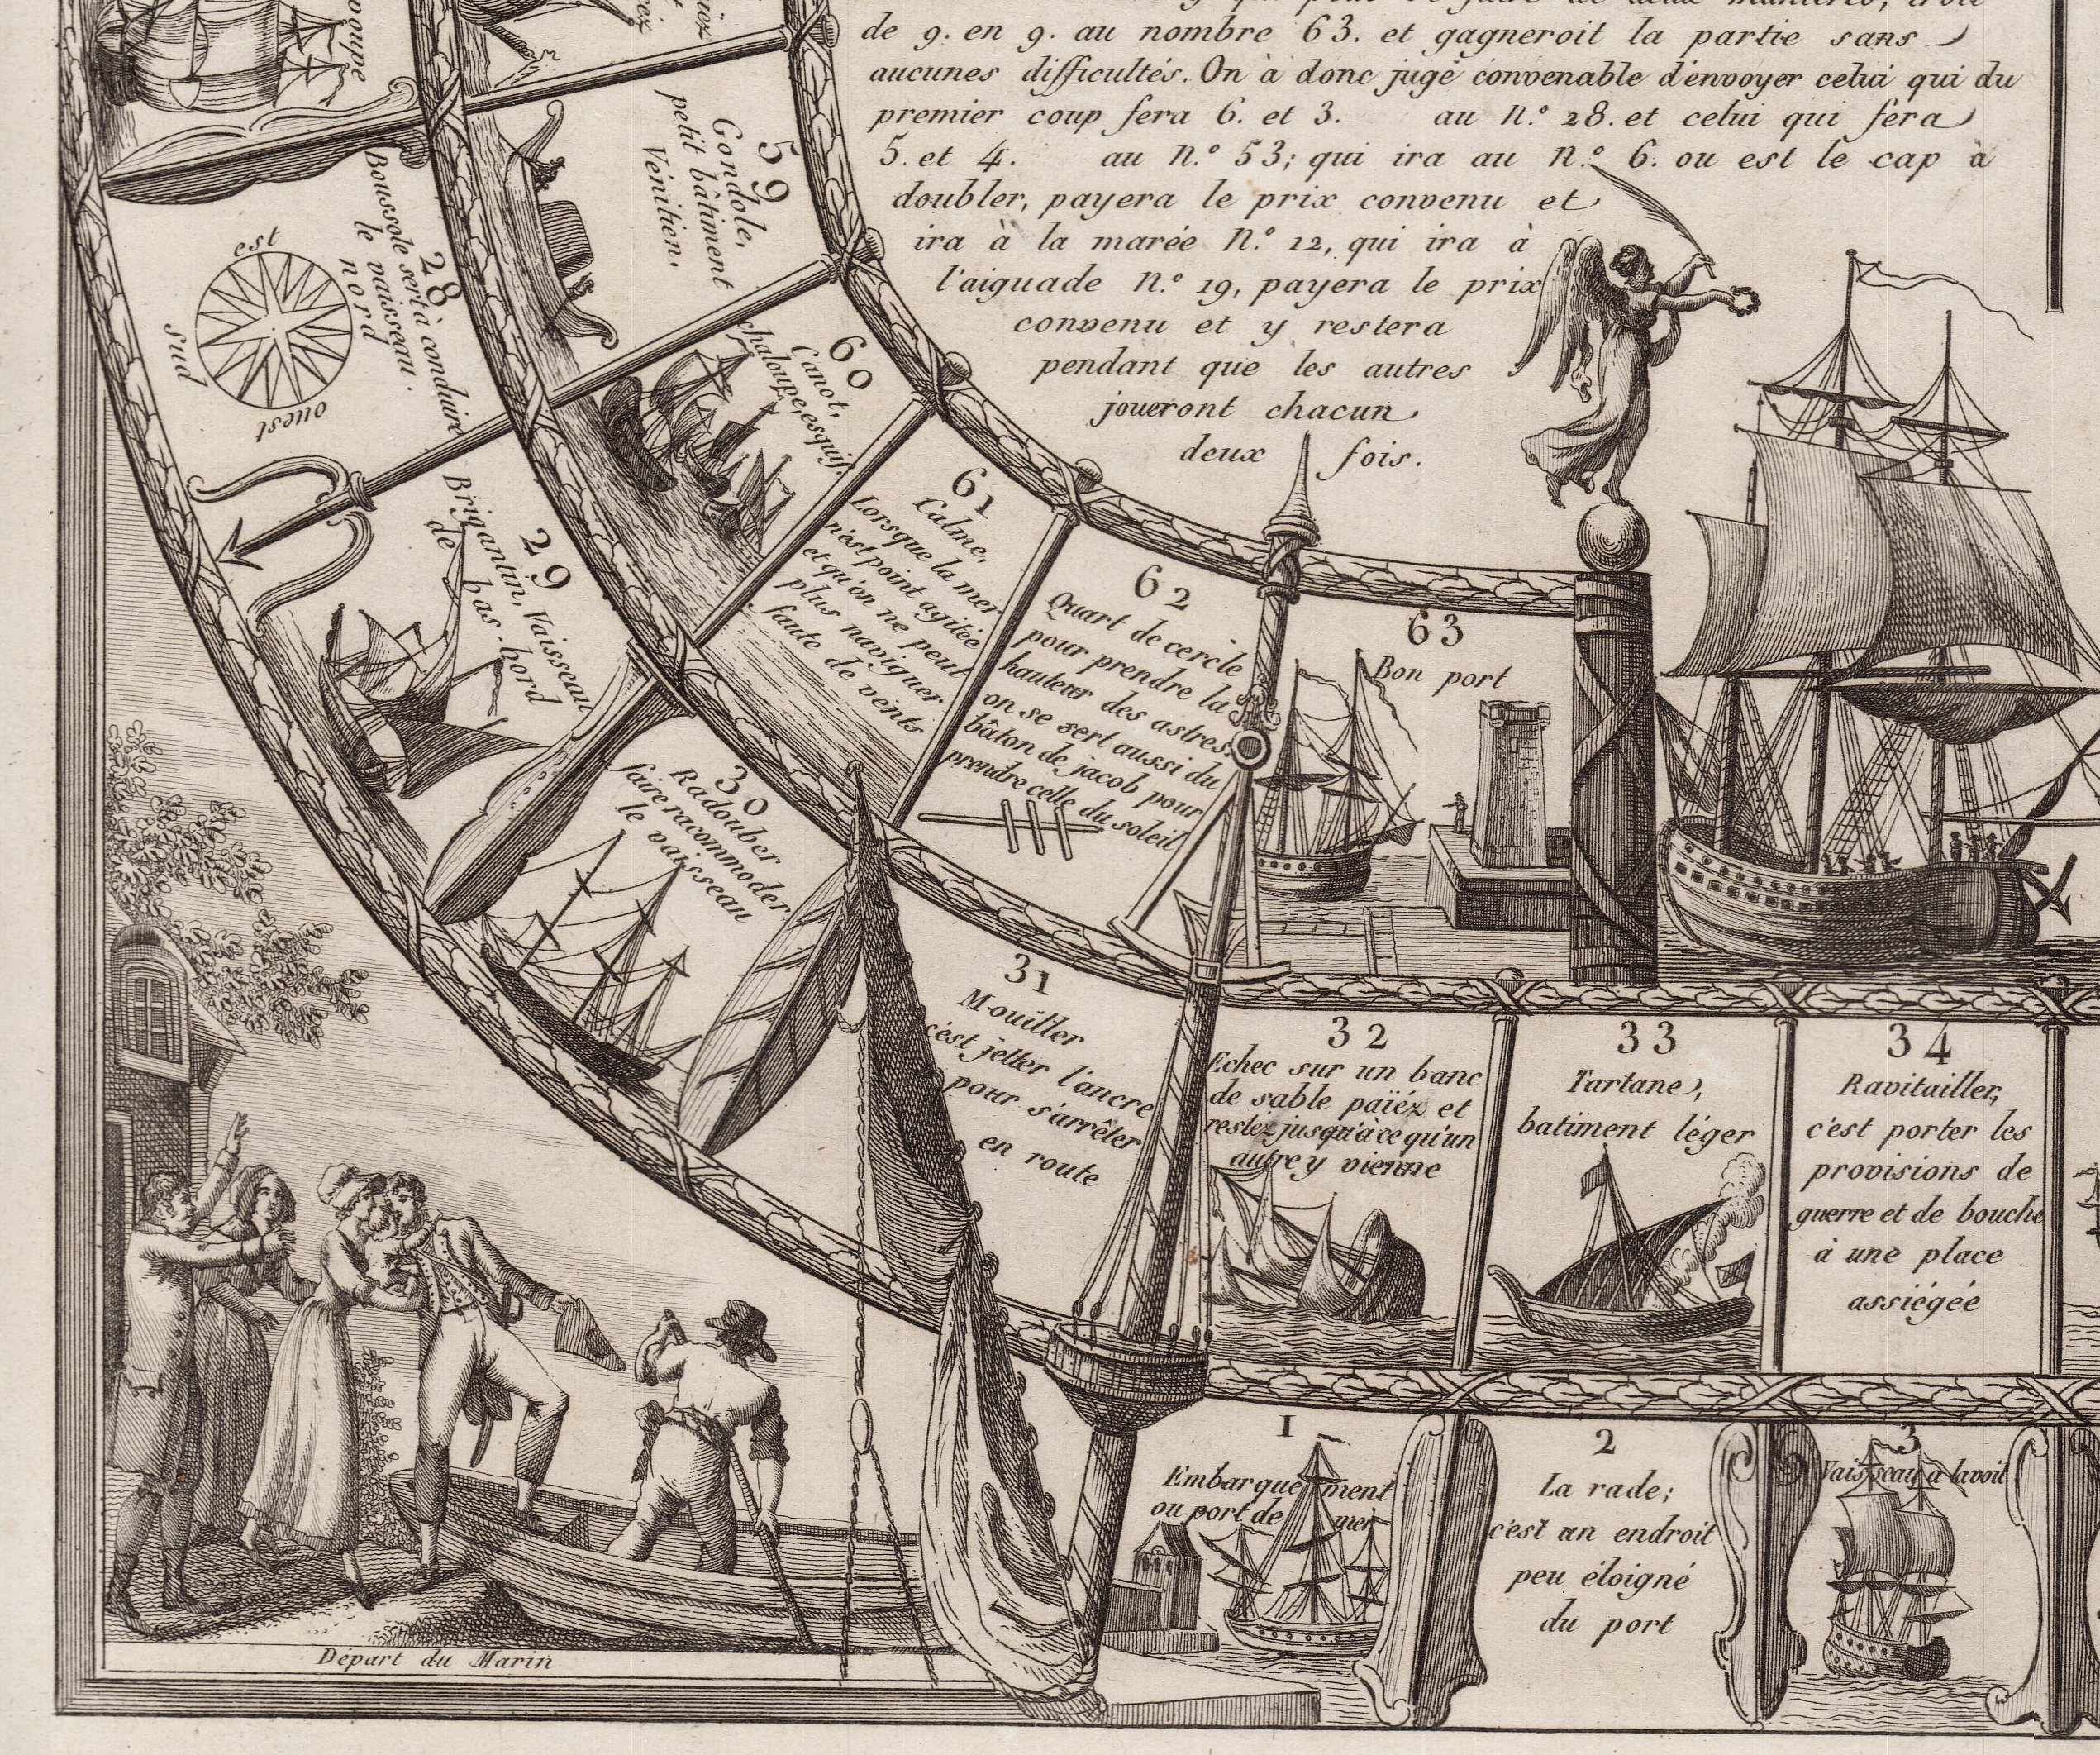 de 9. en 9. au nombre 63. et gagneroit la partie sans
aucunes difficultés. On à donc jugé convenable d'envoyer celui qui du
premier coup fera 6. et 3. au N.º 28. et celui qui fera
5. et 4. au N.º 53; qui ira au N.º 6. ou est le cap à
doubler, payera le prix convenu et
ira à la marée N.º 12, qui ira à
l'aiguade N.º 19, payera le prix
convenu et y restera
pendant que les autres
joueront chacun
deux fois.
28
Boussole sert à conduire
le vaisseau.
nord
est
sud
ouest
29
Brigantin, Vaisseau
de bas-bord
30
Radouber
faire racommoder
le vaisseau
31
Mouiller
c'est jetter l'ancre
pour s'arrêter
en route
32
Echec sur un banc
de sable païéz et
restéz jusqu'à ce qu'un
autre y vienne
33
Tartane,
batiment léger
34
Ravitailler,
c'est porter les
provisions de
guerre et de bouche
à une place
assiégée
59
Gondole,
petit bâtiment
Vénitien,
60
Canot,
chaloupe, esquif,
61
Calme,
Lorsque la mer
n'est point agitée
et qu'on ne peut
plus naviguer
faute de vents
62
Quart de cercle
pour prendre la
hauteur des astres.
on se sert aussi du
bâton de jacob pour
prendre celle du soleil
63
Bon port
1
Embarquement
ou port de mer
2
La rade;
c'est un endroit
peu éloigné
du port
3
Vaisseau à la voil
Départ du Marin